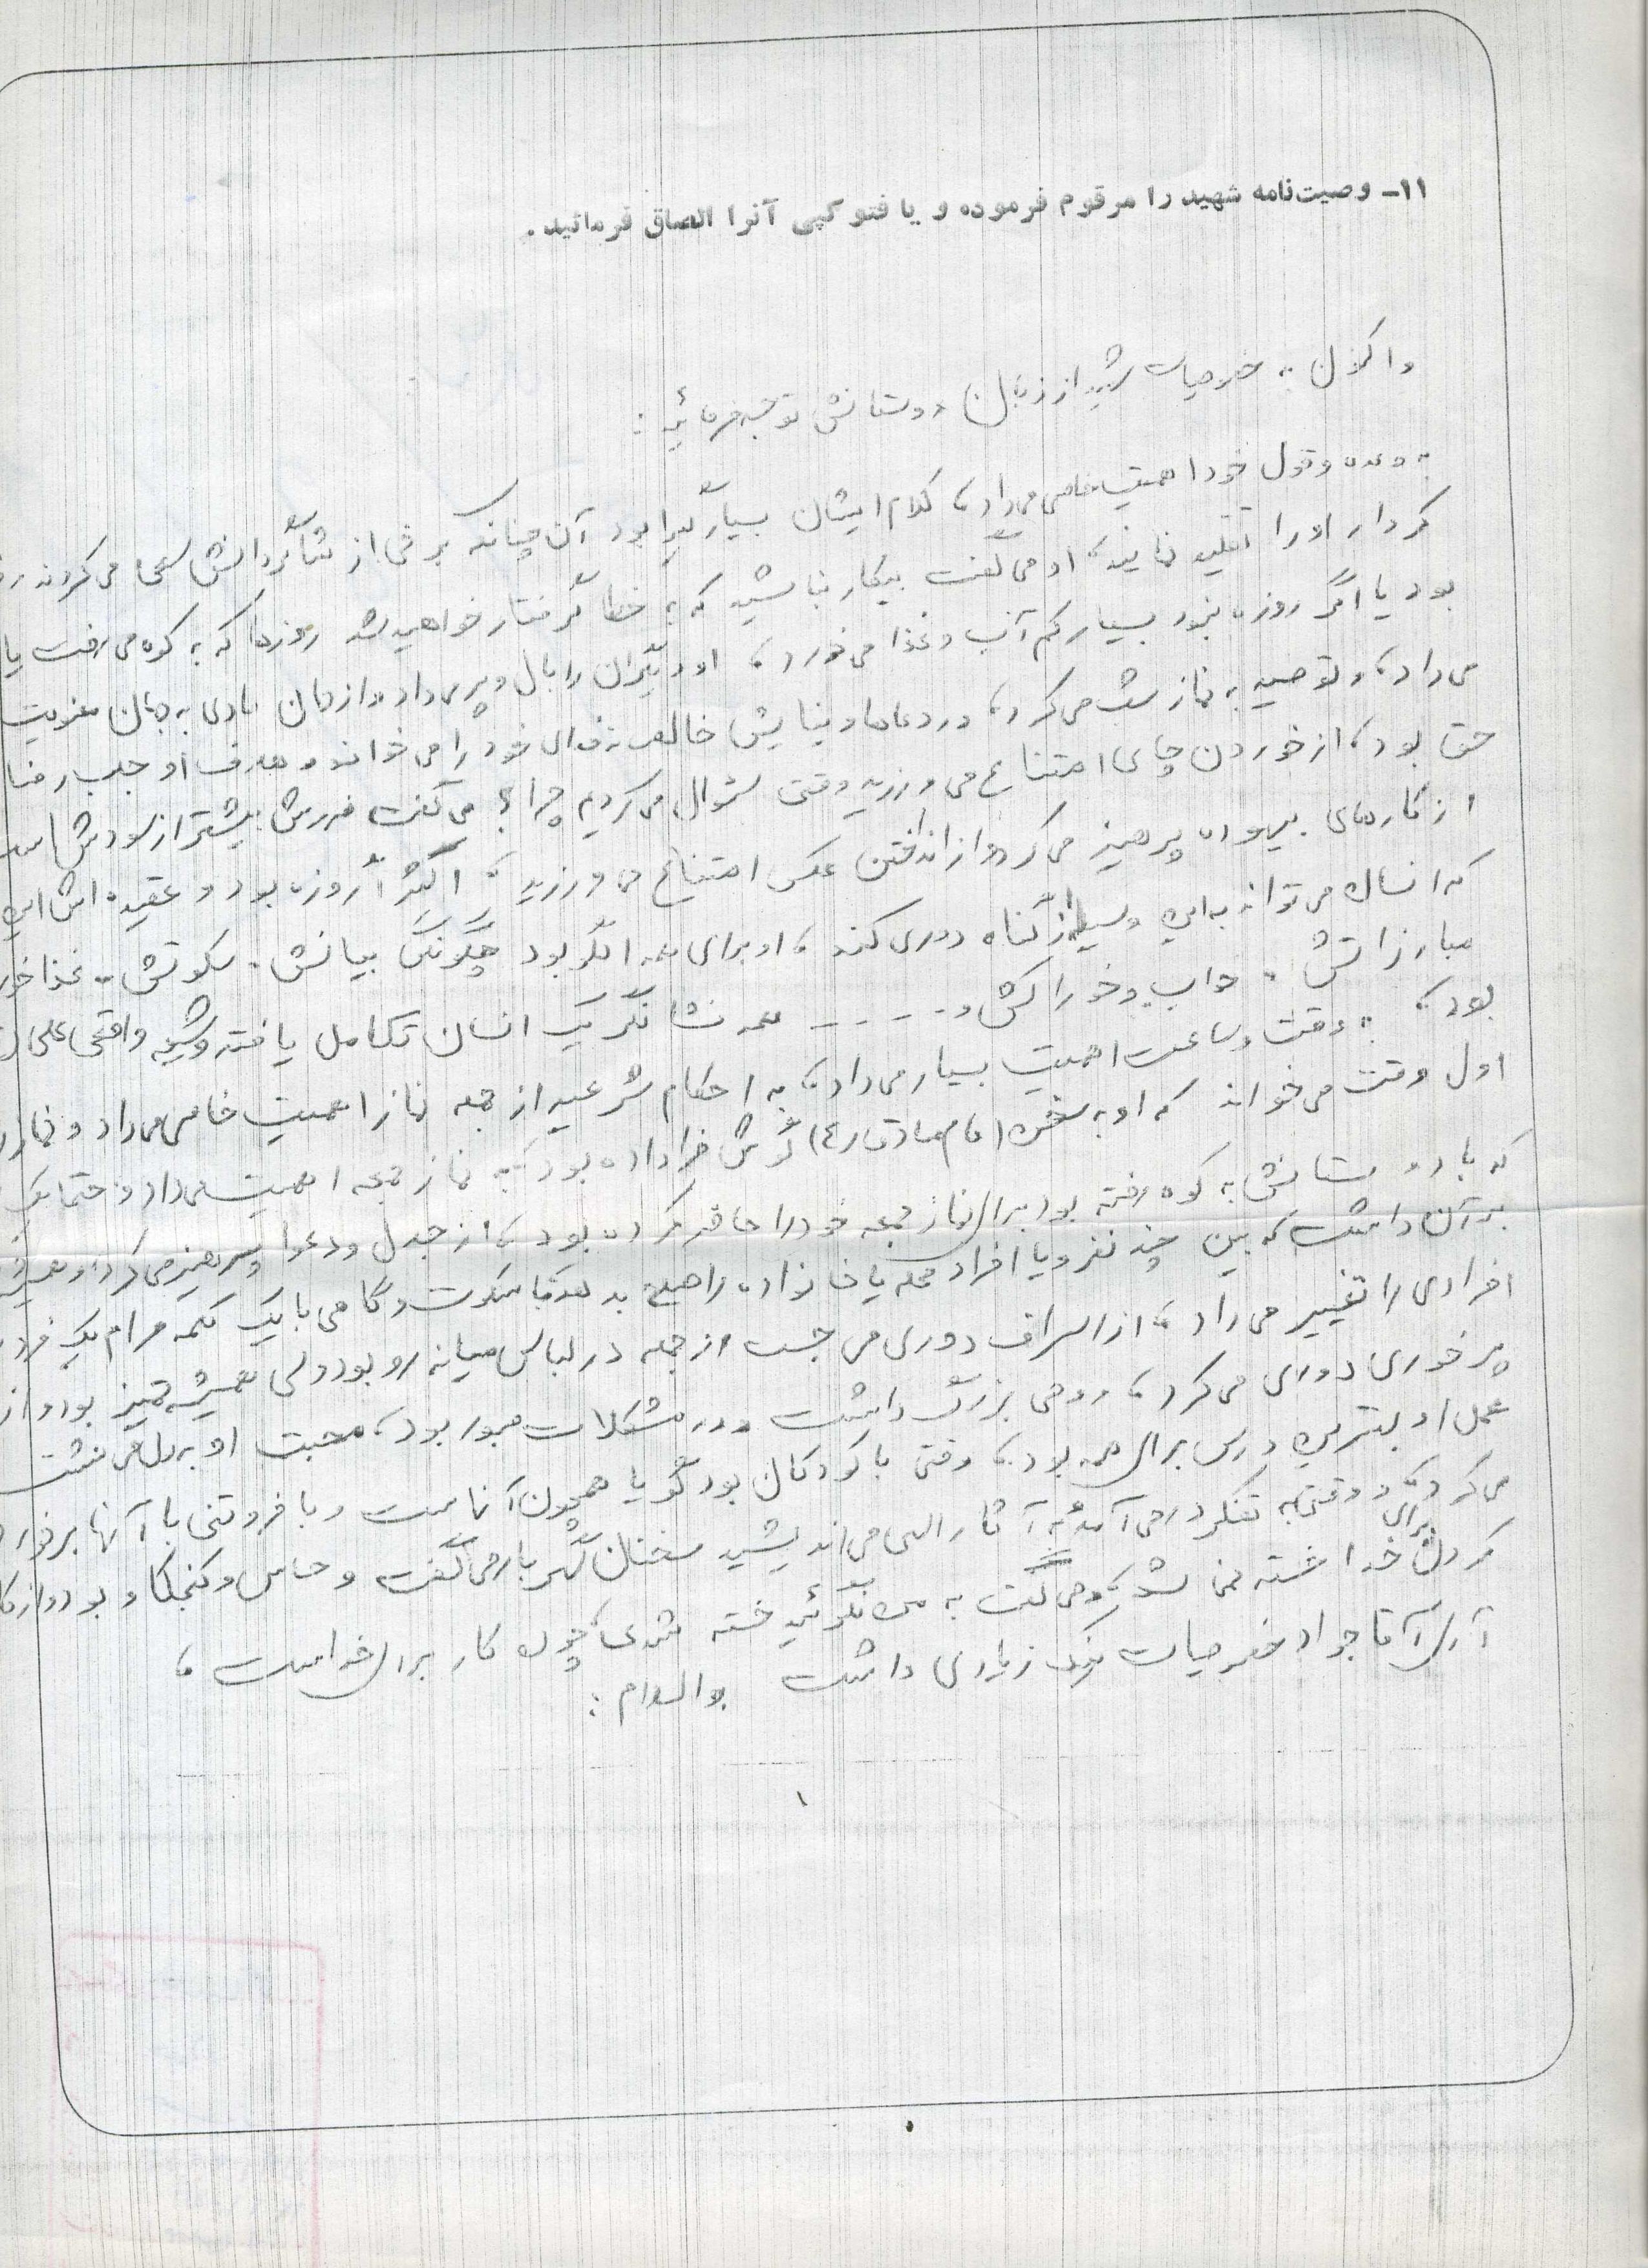 ۱۱- وصیت‌نامه شهید را مرقوم فرموده و یا فتوکپی آنرا الصاق فرمائید.
و اکنون به خصوصیات شهید از زبان دوستانش توجه فرمائید:
به وعده و قول خود اهمیت خاصی می‌داد، کلام ایشان بسیار گیرا بود آن چنانکه برخی از شاگردانش سعی می‌کردند
کردار او را تقلید نمایند، او می‌گفت بیکار نباشید که به خطا گرفتار خواهید شد روزها که به کوه می‌رفت یا
بود یا اگر روزه نبود بسیار کم آب و غذا می‌خورد، او دیگران را بال و پر می‌داد و از جهان مادی به جهان معنویت
می‌داد، و توصیه به نماز شب می‌کرد، در دعاها و نیایش خالصانه خدای خود را می‌خواند و هدف او جلب رضا
حق بود، از خوردن چای امتناع می‌ورزید وقتی سئوال می‌کردیم چرا؟ می‌گفت ضررش بیشتر از سودش است
از کارهای بیهوده پرهیز می‌کرد و از انداختن عکس امتناع می‌ورزید، اکثراً روزه بود و عقیده‌اش این
که انسان می‌تواند به این وسیله از گناه دوری کند، او برای همه الگو بود چگونگی بیانش. سکوتش. غذا
مبارزاتش. خواب و خوراکش و..... همه نشانگر یک انسان تکامل یافته و شیعه واقعی علی
بود، به وقت و ساعت اهمیت بسیار می‌داد، به احکام شرعیه از جمله نماز اهمیت خاصی می‌داد و نماز
اول وقت می‌خواند که او به سخن (امام صادق (ع)) گوش فرا داده بود، به نماز جمعه اهمیت می‌داد و حتماً
که با دوستانش به کوه رفته بود برای نماز جمعه خود را حاضر کرده بود، از جدل و دعوا پرهیز می‌کرد و همیشه
بر آن داشت که بین چند نفر و یا افراد محله یا خانواده را صلح بدهد با سکوت و گاهی با یک کلمه مرام یک
افرادی را تغییر می‌داد، از اسراف دوری می‌جست از جمله در لباس میانه رو بود ولی همیشه تمیز بود و از
پرخوری دوری می‌کرد، روحی بزرگ داشت و در مشکلات صبور بود، محبت او به دل می‌نشست
عمل او بهترین درس برای همه بود، وقتی با کودکان بود گویا همچون آنهاست و با فروتنی با آنها برخورد
می‌کرد، و وقتی به تفکر در می‌آمد به آثار الهی می‌اندیشید سخنان گهربار می‌گفت و حساس و کنجکاو بود و از
کردن برای خدا خسته نمی‌شد، و می‌گفت به من نگوئید خسته شدی، چون کار برای خداست،
آری آقا جواد خصوصیات نیک زیادی داشت والسلام:
۱